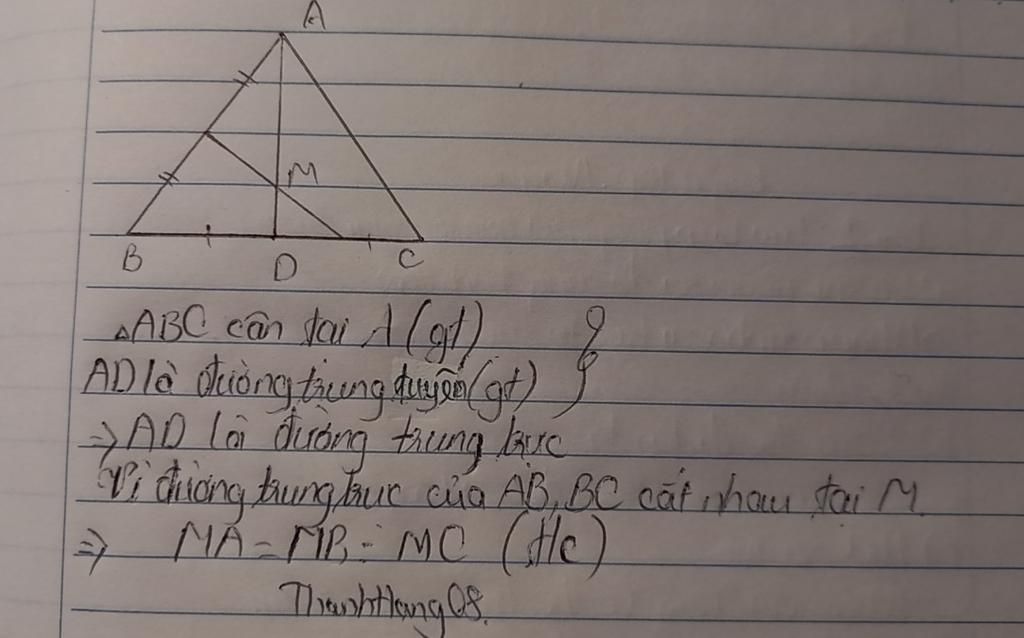 A
M
B
D
C
△ABC cân tại A (gt)
AD là đường trung tuyến (gt)
=> AD là đường trung trực
Vì đường trung trực của AB, BC cắt nhau tại M
=> MA = MB = MC (t/c)
ThanhHang08.